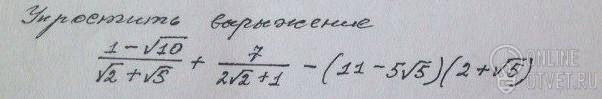 Упростить выражение
(1-√10)/(√2+√5) + 7/(2√2+1) - (11-5√5)(2+√5)
ONLINE
OTVET.RU